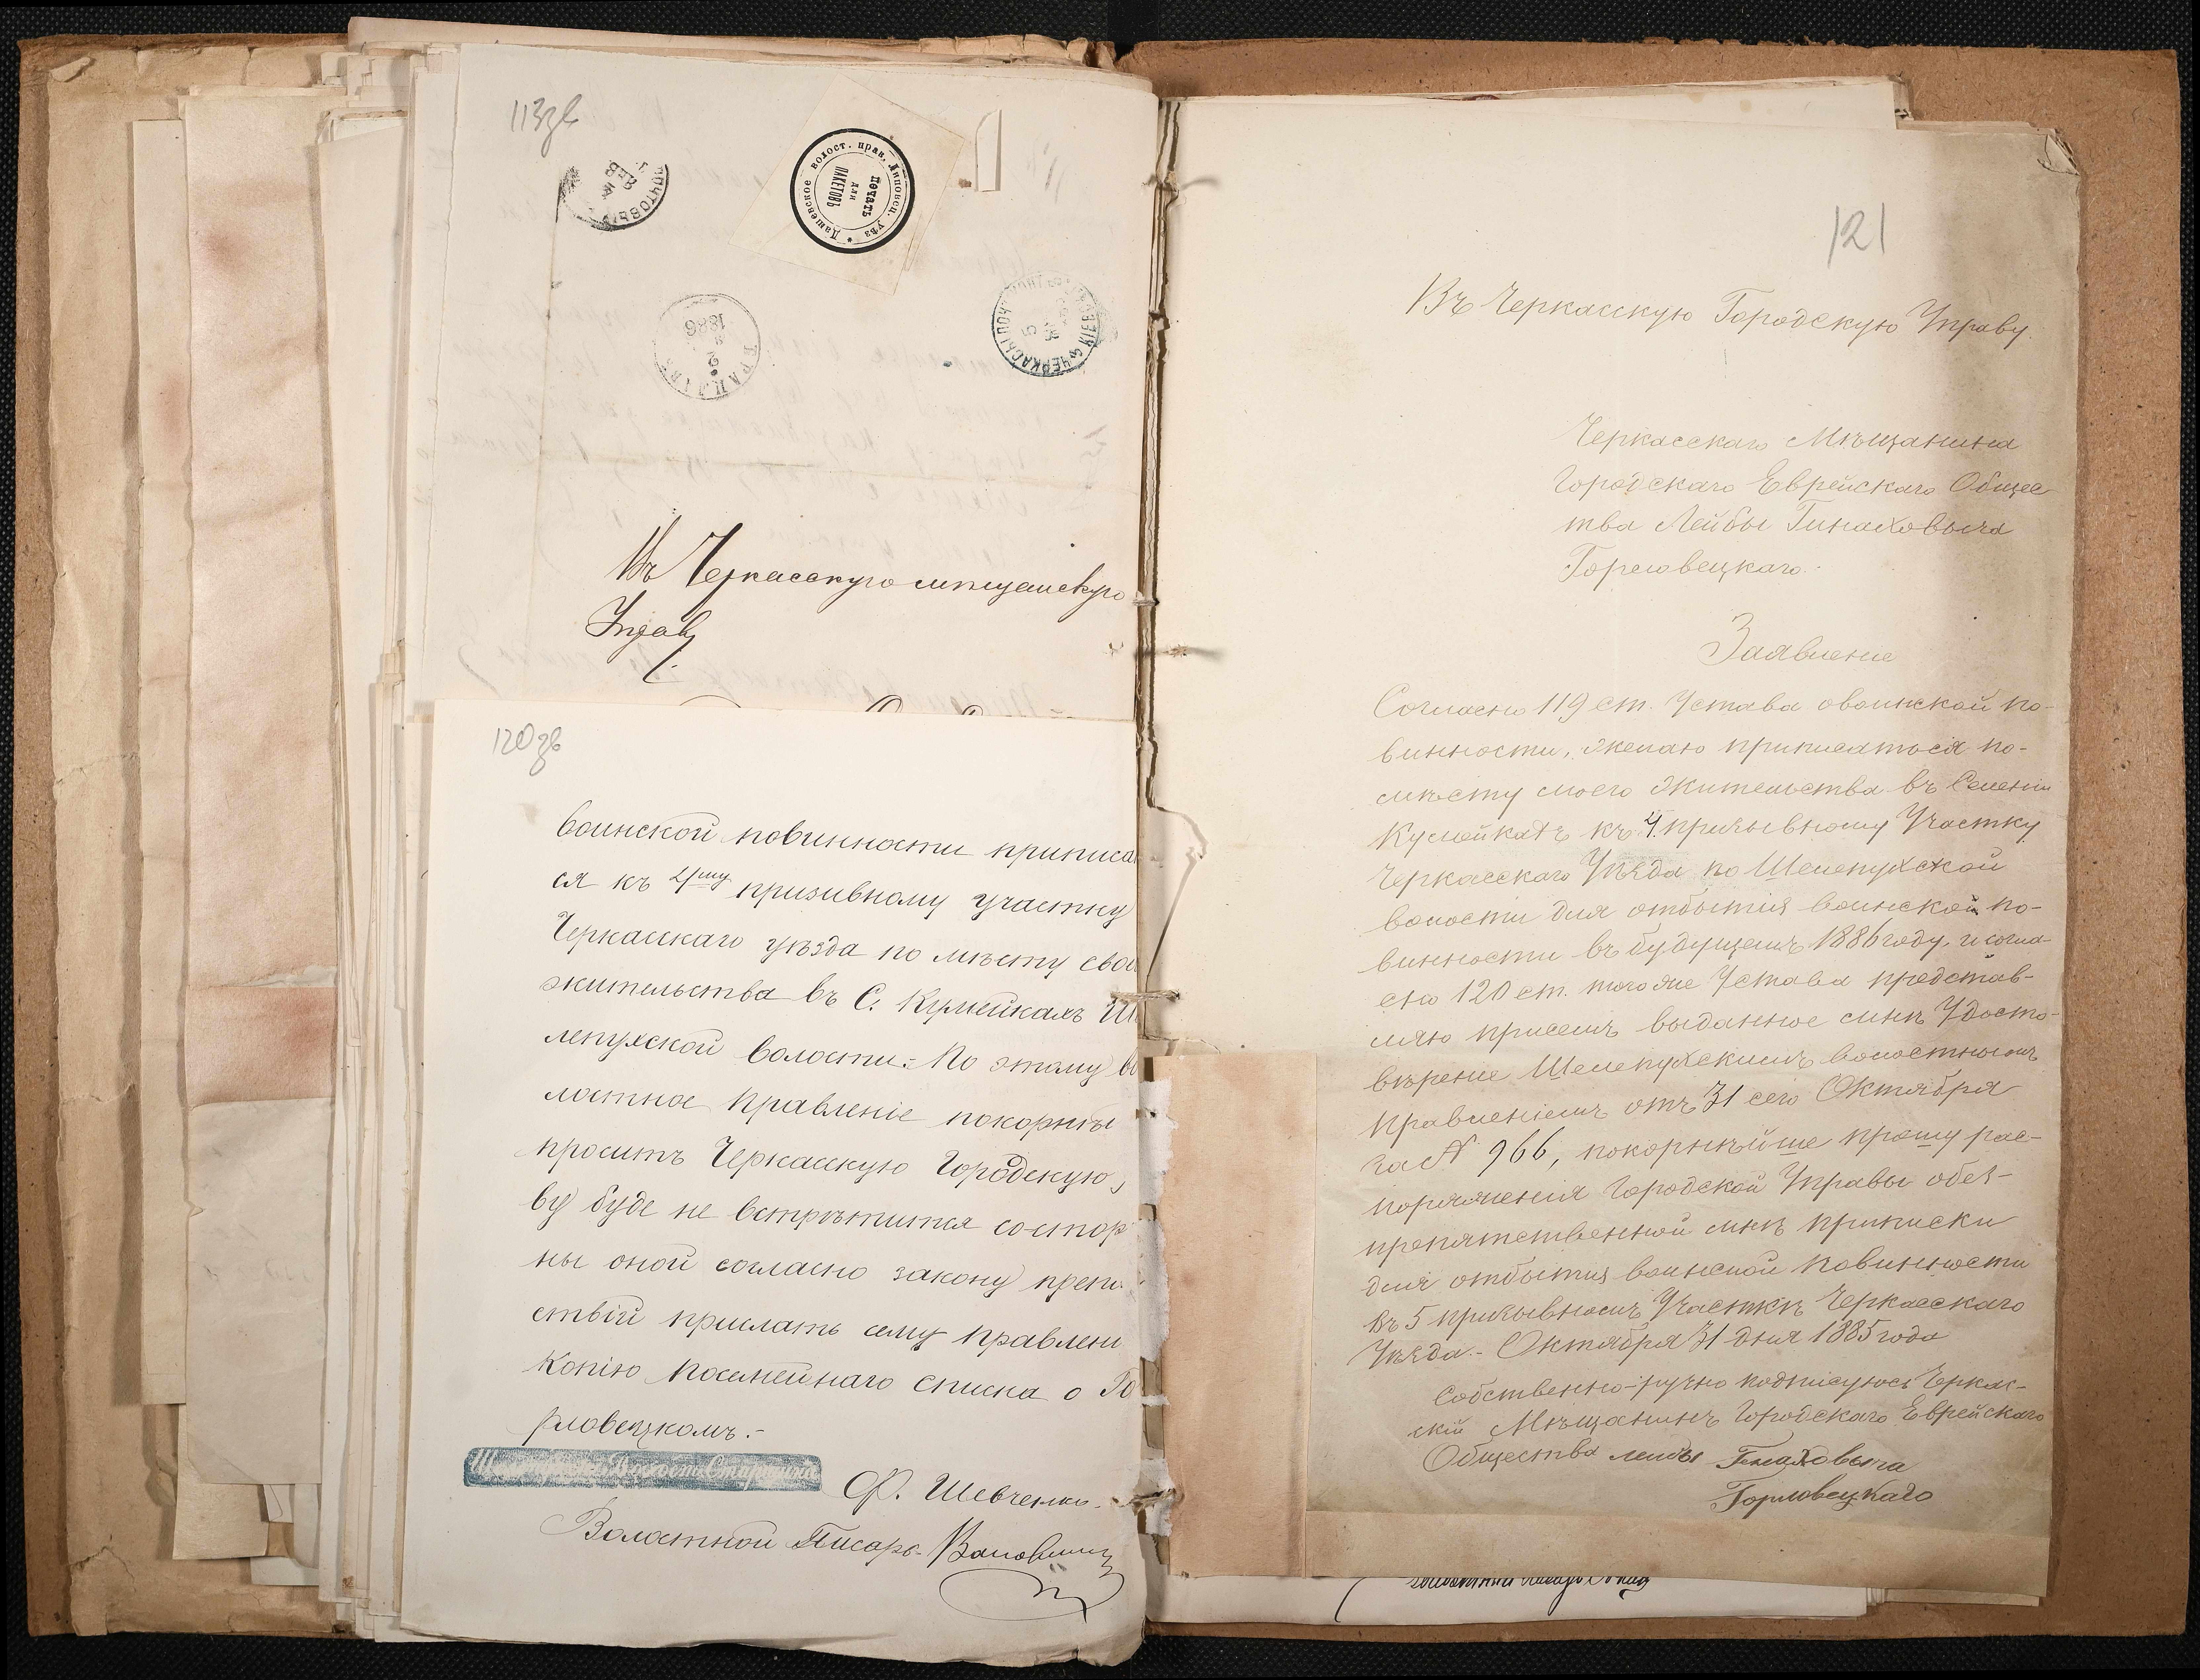 113зв
Дашевское волост. прав. Липовец. уѣз *
печать
для
пакетовъ
1886
Въ Черкасскую мѣщанскую
Управу
120зв
воинской повинности приписа
ся къ 4му призывному участку
Черкасскаго уѣзда по мѣсту свое
жительства въ С. Кумейкахъ Ше
лепухской волости. По этому во
лостное Правленіе покорнѣ
проситъ Черкасскую Городскую
ву буде не встрѣтится со стор
ны оной согласно закону препя
ствій прислать сему правлен
копію посемейнаго списка о Го
рловецкомъ.-
Ф. Шевченко
Волостной Писарь
121
Въ Черкасскую Городскую Управу.
Черкасскаго Мѣщанина
Городскаго Еврейскаго Общес
тва Лейбы Гинаховыча
Горловецкаго.
Заявление
Согласно 119 ст. Устава о воинской по-
винности, желаю приписаться по-
мѣсту моего жительства въ Селеніи
Кумейкахъ къ 4 призывному Участку
Черкасскаго Уѣзда по Шелепухской
волости для отбытия воинской по-
винности въ будущемъ 1886 году, и согла-
сно 120 ст. того же Устава представ-
ляю присемъ выданное мнѣ Удосто-
вѣрение Шелепухскимъ волостнымъ
Правлениемъ отъ 31 сего Октября
за № 966, покорнѣйше прошу рас-
поряжения Городской Управы о без-
препятственной мнѣ приписки
для отбытия воинской повинности
въ 5 призывномъ Участкѣ Черкасскаго
Уѣзда.- Октября 31 дня 1885 года
Собственно-ручно подписуюсь Черкас-
скій Мѣщанинъ Городскаго Еврейскаго
Общества лейбы Гинаховыча
Горловецкаго